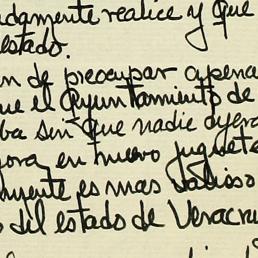 damente realice y que
estado.
n de preocupar apena
ue el Ayuntamiento de
ba sin que nadie dijera
jora en nuevo juguete
mente es mas valioso
o del estado de Veracru